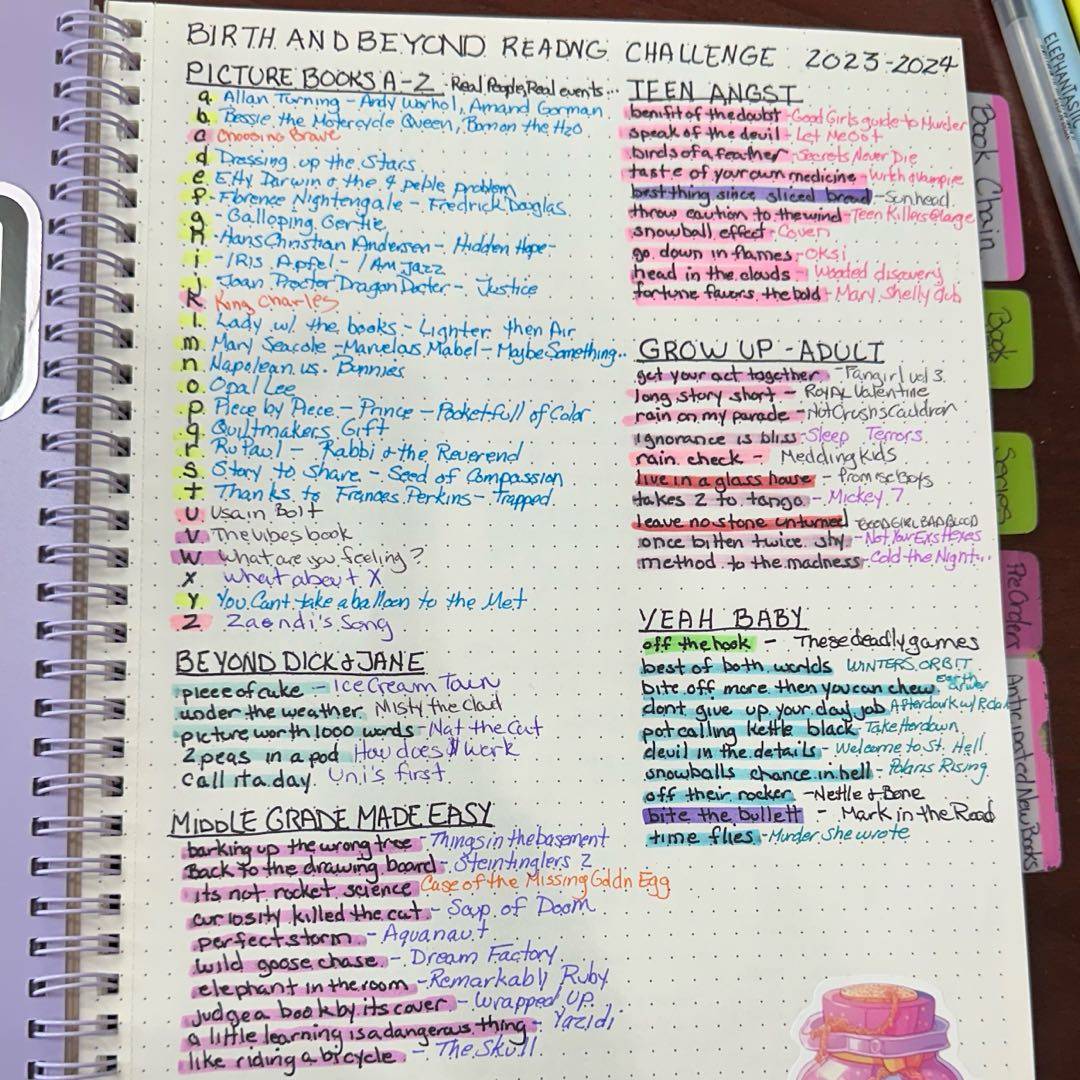 BIRTH AND BEYOND READNG CHALLENGE 2023-2024
PICTURE BOOKS A-Z - Real People, Real events...
a. Allan Turning - Andy Warhol, Amand Gorman
b. Bessie the Motercycle Queen, Bomon the H2o
c Choosing Brave
d Dressing up the Stars
e Etty Darwin & the 4 peble problem
f. Florence Nightengale - Fredrick Douglas
g - Galloping Gertie
h - Hans Christian Andersen - Hidden Hope -
i - IRIS Apfel - I Am Jazz
j Joan Proctor Dragon Docter - Justice
K King Charles
l. Lady w/ the books - Lighter then Air
m Mary Seacole - Marvelous Mabel - Maybe Something...
n Napolean vs. Bunnies
o Opal Lee
p Piece by Piece - Prince - Pocketfull of Color
q Quiltmakers Gift
r RuPaul - Rabbi & the Reverend
s Story to Share - Seed of Compassion
t Thanks to Frances Perkins - Trapped
U Usain Bolt
V The vibes book
W What are you feeling?
X What about X
Y You Cant take a balloon to the Met
Z Zaondi's Song
BEYOND DICK & JANE
piece of cake - Ice Cream Town
under the weather Misty the Cloud
picture worth 1000 words - Nat the Cat
2 peas in a pod How does $ work
call it a day Uni's first
MIDDLE GRADE MADE EASY
barking up the wrong tree - Things in the basement
Back to the drawing board - Steintinglers 2
its not rocket science Case of the Missing Goldn Egg
curiosity killed the cat - Soup of Doom
perfect storm - Aquanaut
wild goose chase - Dream Factory
elephant in the room - Remarkably Ruby
judge a book by its cover - Wrapped Up
a little learning is a dangerous thing - Yazidi
like riding a bicycle - The Skull
TEEN ANGST
benifit of the doubt - Good Girls guide to Murder
speak of the devil - Let Me Out
birds of a feather - Secrets Never Die
taste of your own medicine - Vampire
best thing since sliced bread - Sunhead
throw caution to the wind - Teen Killers @ large
snowball effect - Coven
go down in flames - OKSi
head in the clouds - Wooded discovery
fortune favors the bold - Mary Shelly club
GROW UP - ADULT
get your act together - Fangirl vol 3.
long story short - Royal Valentine
rain on my parade - Not Crushs Cauldron
ignorance is bliss - Sleep Terrors
rain check - Meddling Kids
live in a glass house - Promise Boys
takes 2 to tango - Mickey 7
leave no stone unturned GOOD GIRL BAD BLOOD
once bitten twice shy - Not Your Exs Hexes
method to the madness - Cold the Night...
YEAH BABY
off the hook - These deadly games
best of both worlds WINTERS ORBIT
bite off more then you can chew Earth
dont give up your day job Afterdark w/ Robin
pot calling kettle black - Take Her down
devil in the details - Welcome to St. Hell
snowballs chance in hell - Polaris Rising
off their rocker - Nettle & Bone
bite the bullett - Mark in the Road
time flies - Murder she wrote
Book Chain
Book
Series
PreOrders
Anticipated New Books